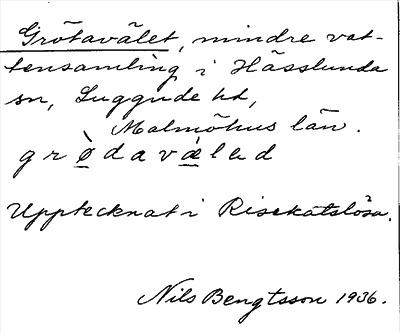 Grötavälet, mindre vat-
tensamling i Hässlunda
sn, Luggude hd,
Malmöhus län.
grø̀davæ̀lad
Upptecknat i Risekatslösa.
Nils Bengtsson 1936.